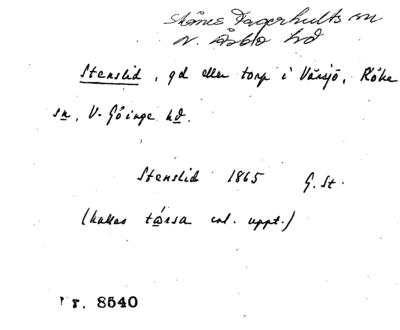 Skånes Fagerhults sn
N. Åsbo hd
Stenslid, gd eller torp i Vårsjö, Röke
sn, V. Göinge hd.
Stenslid 1865 G. St.
(kallas tårsa enl. uppt.)
r. 8540